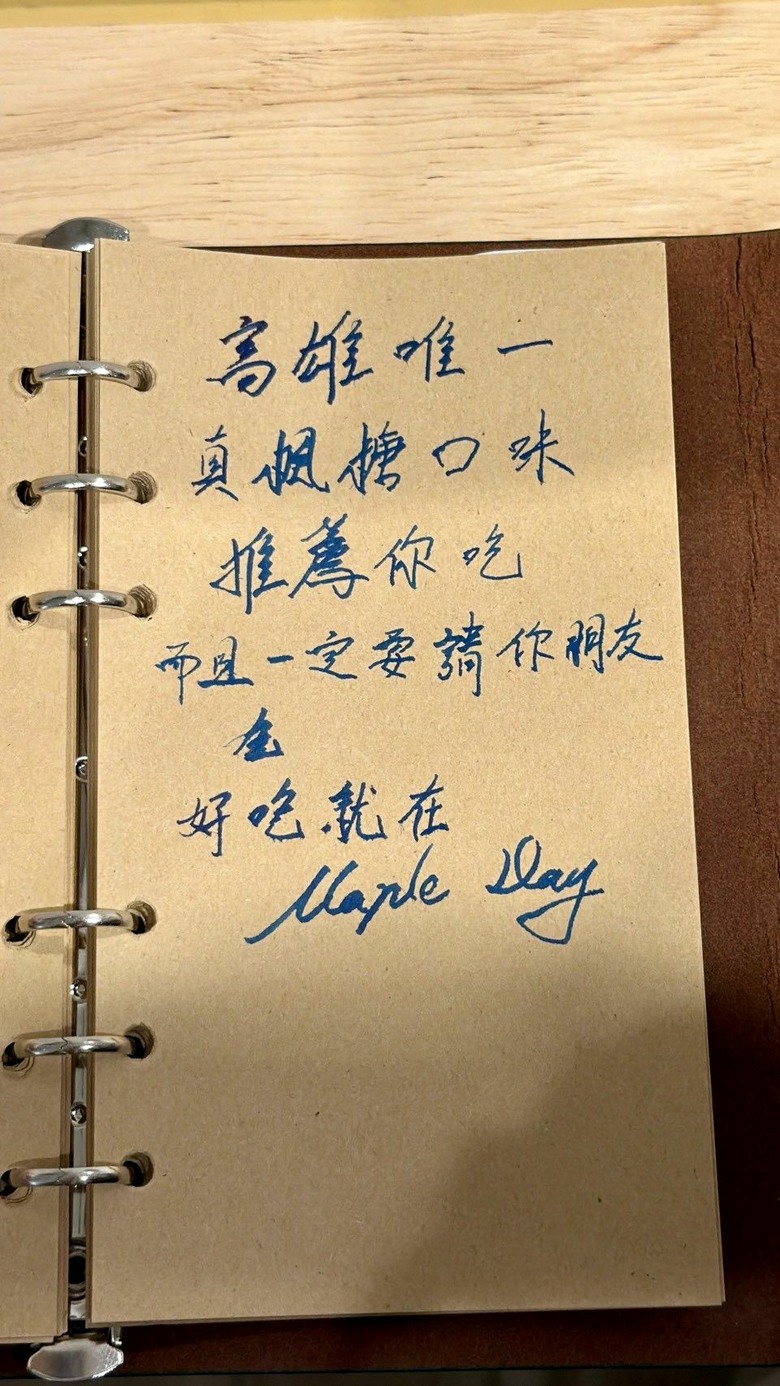 高雄唯一
真楓糖口味
推薦你吃
而且一定要請你朋友
全
好吃就在
Maple Day